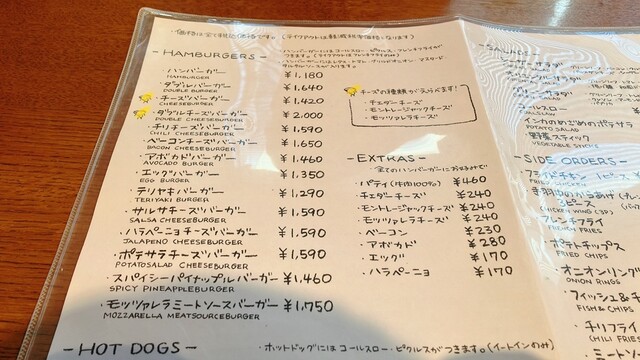 ・価格は全て税込価格です。(テイクアウトは軽減税率価格になります)
- HAMBURGERS -
・ハンバーガーにはコールスロー・ピクルス・フレンチフライが
つきます。(テイクアウトはフレンチフライのみ)
・ハンバーガー ¥1,180
HAMBURGER
・ダブルバーガー ¥1,640
DOUBLE BURGER
・チーズバーガー ¥1,420
CHEESEBURGER
・ダブルチーズバーガー ¥2,000
DOUBLE CHEESEBURGER
・チリチーズバーガー ¥1,590
CHILI CHEESEBURGER
・ベーコンチーズバーガー ¥1,650
BACON CHEESEBURGER
・アボカドバーガー ¥1,460
AVOCADO BURGER
・エッグバーガー ¥1,350
EGG BURGER
・テリヤキバーガー ¥1,290
TERIYAKI BURGER
・サルサチーズバーガー ¥1,590
SALSA CHEESEBURGER
・ハラペーニョチーズバーガー ¥1,590
JALAPENO CHEESEBURGER
・ポテサラチーズバーガー ¥1,590
POTATOSALAD CHEESEBURGER
・スパイシーパイナップルバーガー ¥1,460
SPICY PINEAPPLEBURGER
・モッツァレラミートソースバーガー ¥1,750
MOZZARELLA MEATSOURCEBURGER
チーズの種類が選べます!
・チェダーチーズ
・モントレージャックチーズ
・モッツァレラチーズ
- EXTRAS -
・全てのハンバーガーにお好みで
・パティ(牛肉100%) ¥460
・チェダーチーズ ¥240
・モントレージャックチーズ ¥240
・モッツァレラチーズ ¥240
・ベーコン ¥230
・アボカド ¥280
・エッグ ¥170
・ハラペーニョ ¥170
- HOT DOGS -
・ホットドッグにはコールスロー・ピクルスがつきます。(イートインのみ)
・インカのめざめのポテサラ
POTATO SALAD
・野菜スティック
VEGETABLE STICKS
- SIDE ORDERS -
FRIED CHICKEN
3ピース
(CHICKEN WING 3P)
フレンチフライ
FRENCH FRIES
・ポテトチップス
FRIED CHIPS
・オニオンリング
ONION RINGS
・フィッシュ&チ
FISH & CHIPS
・チリフライ
CHILI FRIE
・ミート